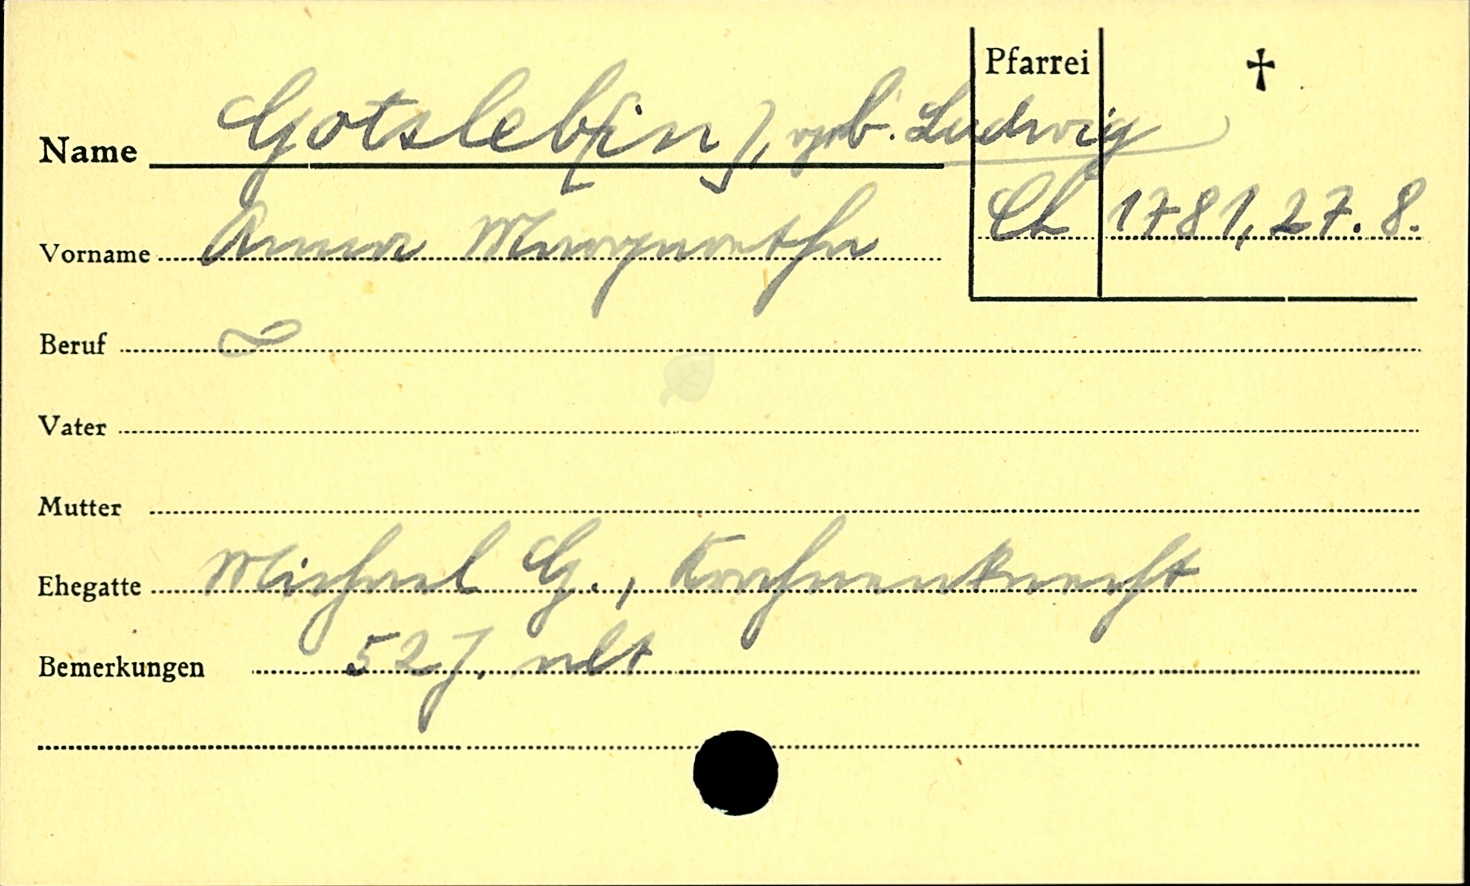 Pfarrei †
Name Gotsleb(in), geb. Ludwig
Vorname Anna Margaretha Ch 1781, 27. 8.
Beruf
Vater
Mutter
Ehegatte Michael G., Krahnenknecht
Bemerkungen 52 J. alt